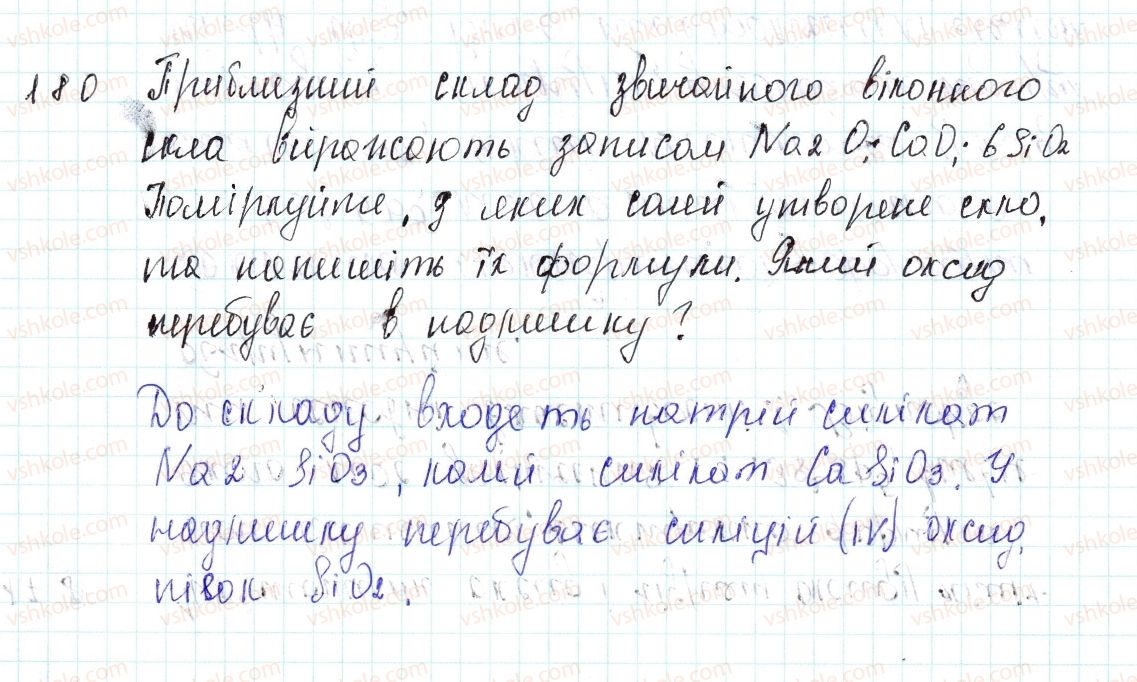 180 Приблизний склад звичайного віконного
скла виражають записом Na2O; CaO; 6SiO2
Поміркуйте, з яких солей утворене скло,
та напишіть їх формули. Який оксид
перебуває в надлишку?
До складу входять натрій силікат
Na2SiO3, калій силікат CaSiO3. У
надлишку перебуває силіцій (IV) оксид
пісок SiO2.